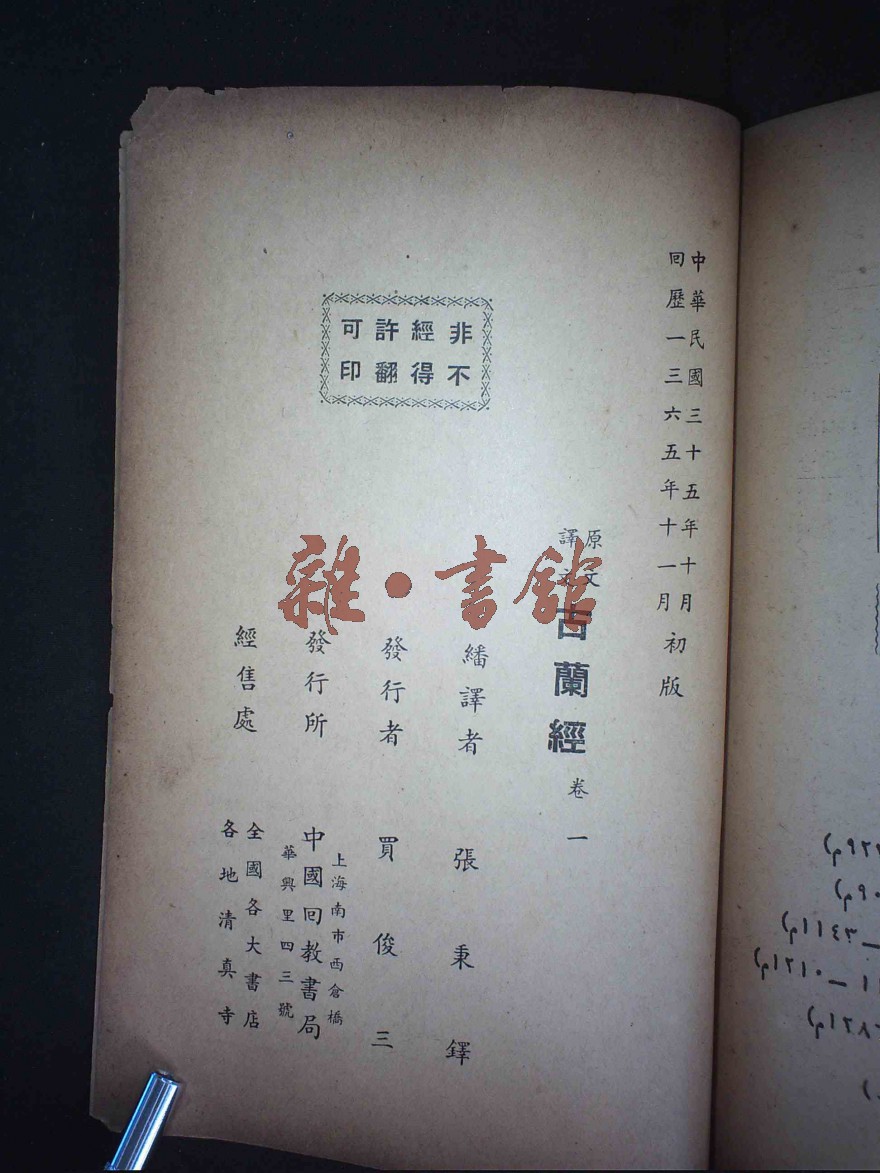 中華民國三十五年十月
回歷一三六五年十一月
初版
原文
譯文
古蘭經 卷一
非經許可
不得翻印
繙譯者 張秉鐸
發行者 買俊三
發行所
上海南市西倉橋
中國回教書局
華興里四三號
經售處
全國各大書店
各地清真寺
雜·書館